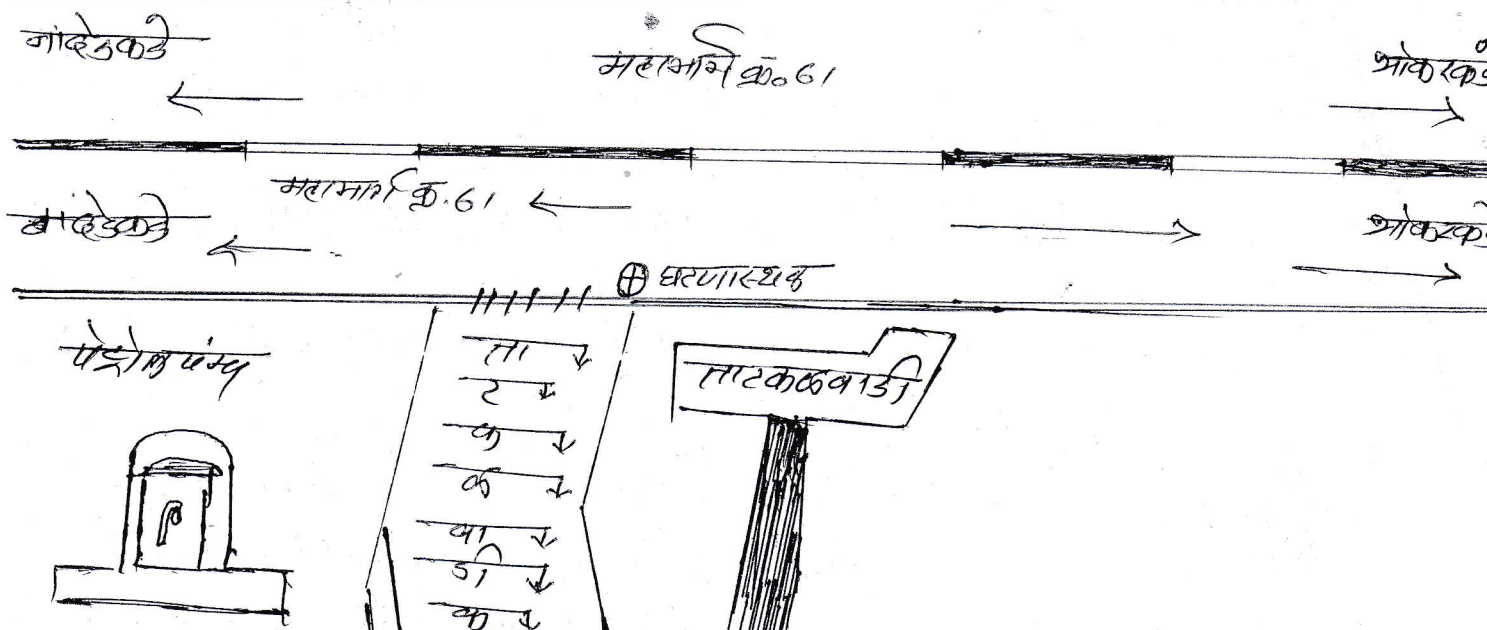 नांदेडकडे
महामार्ग क्र. 61
भोकरकडे
महामार्ग क्र. 61
नांदेडकडे
भोकरकडे
घटणास्थळ
पेट्रोल पंम्प
ता
ट
क
ळ
वा
डी
क
ताटकळवाडी
P